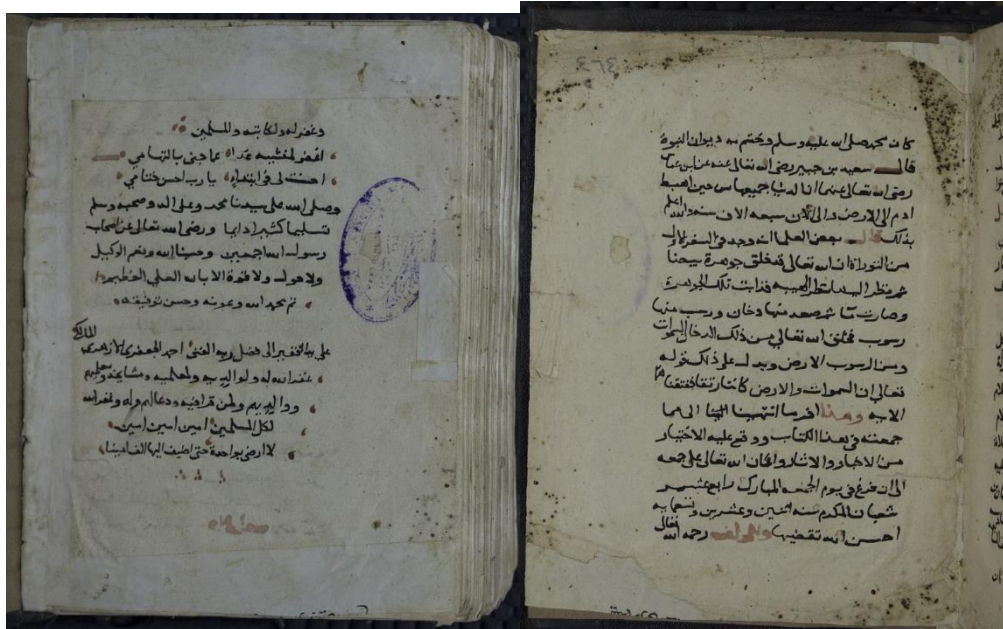 ٤٦٤
كان محمد صلى الله عليه وسلم ويختم به ديوان النبوة
قال سعيد بن جبير رضي الله تعالى عنه عن ابن عباس
رضى الله تعالى عنهما ان الدنيا جميعها من حين اهبط
ادم الى الارض والى الان سبعه الاف سنه والله اعلم
بذلك قال بعض العلما انه وجد في السفر الاول
من التوراة ان الله تعالى قد خلق جوهرة بيضا
ثم نظر اليها نظر الهيبه فذابت تلك الجوهرة
وصارت ما ثم صعد منها دخان ورسب منها
رسوب فخلق الله تعالى من ذلك الدخان السموات
ومن الرسوب الارض ويدل على ذلك قوله
تعالى ان السموات والارض كانتا رتقا ففتقناهما
الايه وهذا اخر ما انتهينا اليه الى هما
جمعته في هذا الكتاب ووقع عليه الاختيار
من الاخبار والاثار واعان الله تعالى على جمعه
الى ان فرغ في يوم الجمعه المبارك رابع عشر
شعبان المكرم سنه اثنين وعشرين وتسعمايه
احسن الله تقضيها والمؤلف رحمه الله تعالى
وغفر له ولكاتبه والمسلمين
اغفر لمنشيه غدا عما جنى بالتهامي
احسنت لى في ابتداء يا رب احسن ختامي
وصلى الله على سيدنا محمد وعلى اله وصحبه وسلم
تسليما كثيرا دايما ورضي الله تعالى عن اصحاب
رسول الله اجمعين وحسبنا الله ونعم الوكيل
ولا حول ولا قوة الا بالله العلي العظيم
تم بحمد الله وعونه وحسن توفيقه
على يد الفقير الى فضل ربه الغنى احمد الجعفري الازهري المالكي
غفر الله له ولوالديه ولمعلميه ومشايخه ومعلميهم
ووالديهم ولمن قرا فيه ودعا لهم وله وغفر الله
لكل المسلمين امين امين امين
لا ارضى بواحدة حتى اضيف اليها الف امينا